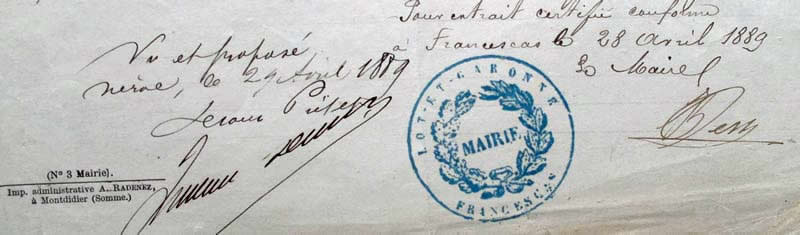 Pour extrait certifié conforme
à Francescas le 28 avril 1889
Le Maire
Vu et proposé
Nérac, le 29 Avril 1889
LOT-ET-GARONNE
MAIRIE
FRANCESCAS
(N° 3 Mairie).
Imp. administrative A. RADENEZ,
à Montdidier (Somme.)